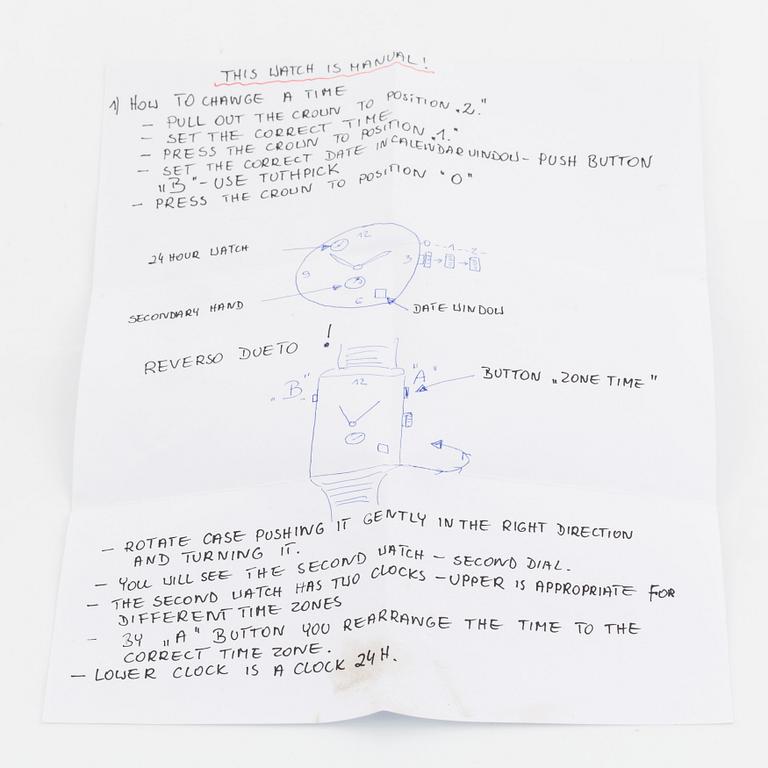 THIS WATCH IS MANUAL!
1) HOW TO CHANGE A TIME
- PULL OUT THE CROWN TO POSITION „2."
- SET THE CORRECT TIME
- PRESS THE CROWN TO POSITION „1."
- SET THE CORRECT DATE IN CALENDAR WINDOW - PUSH BUTTON
„B" - USE TUTHPICK
- PRESS THE CROWN TO POSITION "0"
12
0 - - 1 - - 2 -
24 HOUR WATCH
3
9
6
SECONDARY HAND
DATE WINDOW
REVERSO DUETO !
"A"
BUTTON „ZONE TIME"
„B"
12
- ROTATE CASE PUSHING IT GENTLY IN THE RIGHT DIRECTION
AND TURNING IT.
- YOU WILL SEE THE SECOND WATCH - SECOND DIAL.
- THE SECOND WATCH HAS TWO CLOCKS - UPPER IS APPROPRIATE FOR
DIFFERENT TIME ZONES
- BY „A" BUTTON YOU REARRANGE THE TIME TO THE
CORRECT TIME ZONE.
- LOWER CLOCK IS A CLOCK 24H.